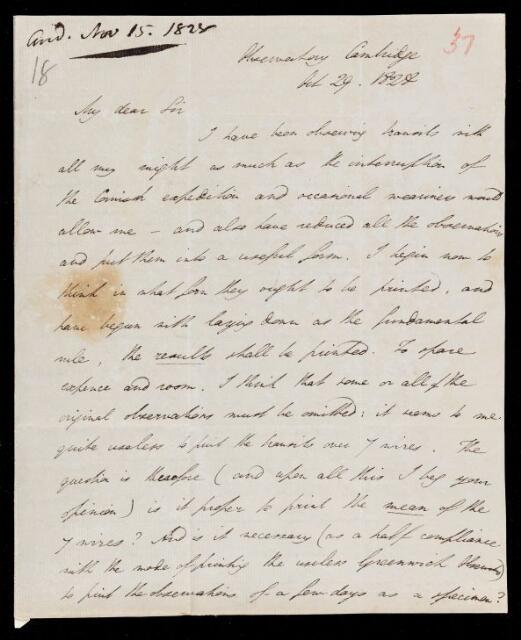 And. Nov 15. 1828
18
37
Observatory Cambridge
Oct 29. 1828
My dear Sir
I have been observing transits with
all my might as much as the interruption of
the Cornish expedition and occasional weariness would
allow me – and also have reduced all the observations
and put them into a useful form. I begin now to
think in what form they ought to be printed, and
have begun with laying down as the fundamental
rule, the results shall be printed. To spare
expence and room, I think that some or all of the
original observations must be omitted: it seems to me
quite useless to print the transits over 7 wires. The
question is therefore (and upon all this I beg your
opinion) is it proper to print the mean of the
7 wires? And is it necessary (as a half compliance
with the mode of printing the useless Greenwich Observations)
to print the observations of a few days as a specimen?